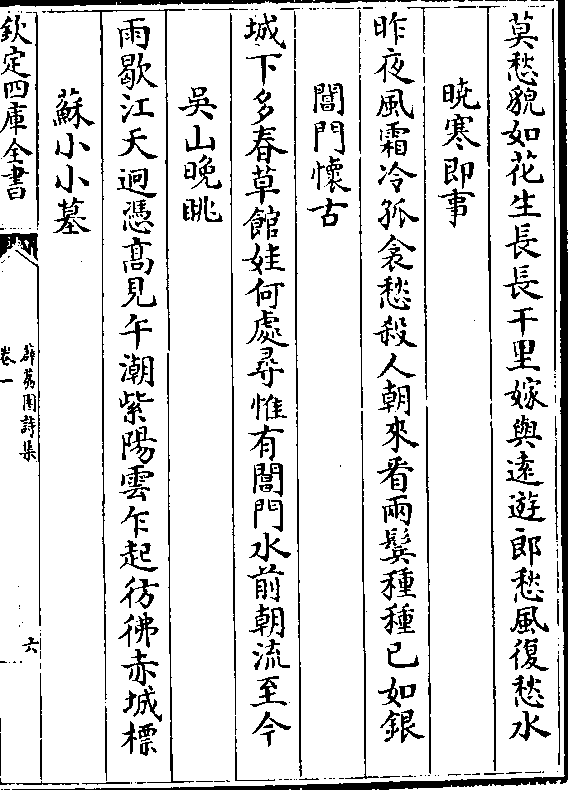 莫愁貌如花生長長干里嫁與遠遊郎愁風復愁水
暁寒即事
昨夜風霜冷孤衾愁殺人朝來看兩鬓種種已如銀
閶門懷古
城下多春草館娃何處尋惟有閶門水前朝流至今
吳山晚眺
雨歇江天迥憑髙見午潮紫陽雲乍起彷彿赤城標
蘇小小墓
欽定四庫全書
薜荔園詩集
卷一
六